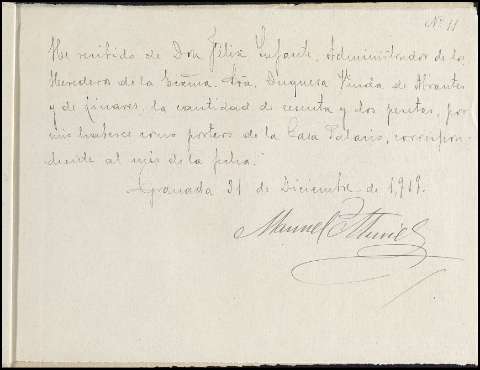 Nº 11
He recibido de Don Félix Infante, Administrador de los
Herederos de la Excma. Sra. Duquesa Viuda de Abrantes
y de Linares, la cantidad de sesenta y dos pesetas, por
mis haberes como portero de la Casa Palacio, correspon-
diente al mes de la fecha.
Granada 31 de Diciembre de 1,919.
Manuel